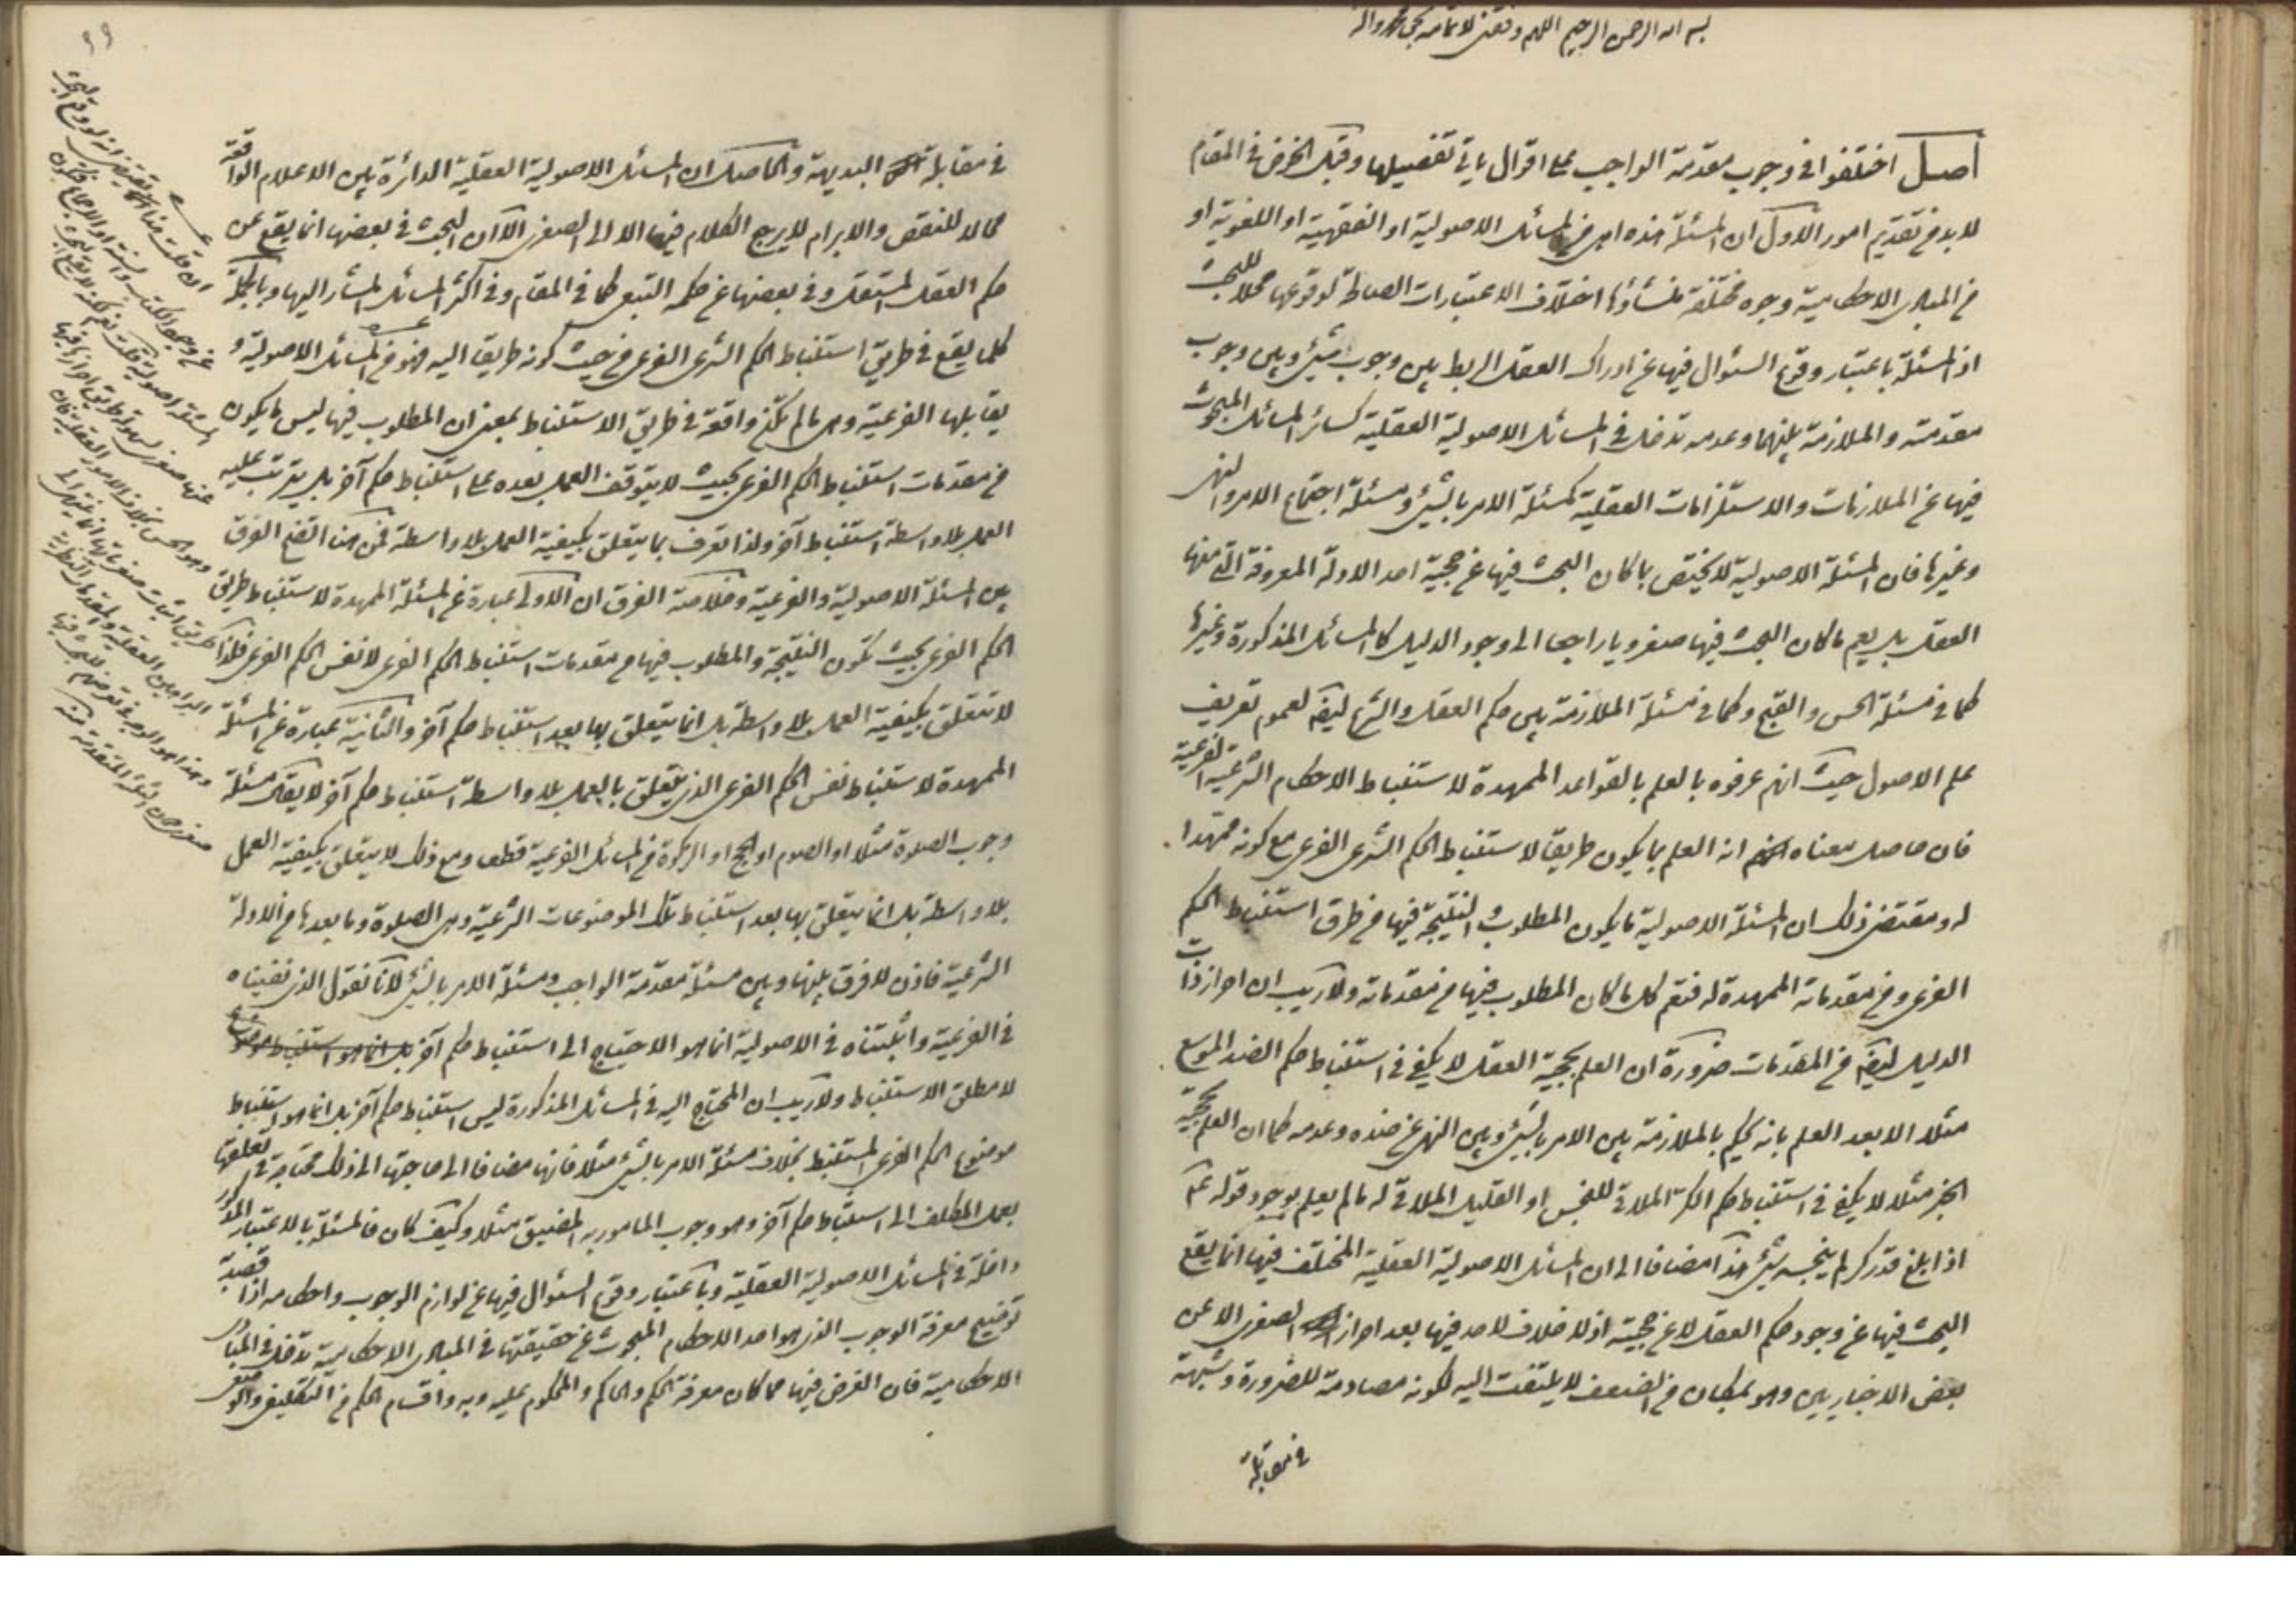 بسم الله الرحمن الرحيم اللهم وفقني لاتمامه بحق محمد واله
اصل اختلفوا في وجوب مقدمة الواجب على اقوال ياتي تفصيلها وقبل الخوض في المقام
لا بد من تقديم امور الاول ان المسئلة هذه اهي من المسائل الاصولية او الفقهية او اللغوية او
من المبادي الاحكامية وجوه مختلفة منشأؤها اختلاف الاعتبارات الصالحة لوقوعها محلا للبحث
اذ المسئلة باعتبار وقوع السئوال فيها عن ادراك العقل الربط بين وجوب شيء وبين وجوب
مقدمته والملازمة بينهما وعدمه تدخل في المسائل الاصولية العقلية كسائر المسائل المبحوث
فيها عن الملازمات والاستلزامات العقلية كمسئلة الامر بالشيء ومسئلة اجتماع الامر والنهي
وغيرها فان المسئلة الاصولية لا يختص بما كان البحث فيها عن حجية احد الادلة المعروفة التي منها
العقل بل يعم ما كان البحث فيها صغرويا راجعا الى وجود الدليل كالمسائل المذكورة وغيرها
كما في مسئلة الحسن والقبح وكما في مسئلة الملازمة بين حكم العقل والشرع ايضا لعموم تعريف
علم الاصول حيث انهم عرفوه بالعلم بالقواعد الممهدة لاستنباط الاحكام الشرعية الفرعية
فان حاصل معناه انه العلم بما يكون طريقا لاستنباط الحكم الشرعي الفرعي مع كونه ممهدا
له ومقتضى ذلك ان المسئلة الاصولية ما يكون المطلوب والنتيجة فيها من طرق استنباط الحكم
الفرعي ومن مقدماته الممهدة له فتعم كل ما كان المطلوب فيها من مقدماته ولا ريب ان احراز ذات
الدليل ايضا من المقدمات ضرورة ان العلم بحجية العقل لا يكفي في استنباط حكم الضد الموسع
مثلا الا بعد العلم بانه يحكم بالملازمة بين الامر بالشيء وبين النهي عن ضده وعدمه كما ان العلم بحجية
الخبر مثلا لا يكفي في استنباط حكم الكر الملاقي للنجس او القليل الملاقي له ما لم يعلم بوجود قوله عم
اذا بلغ قدر كر لم ينجسه شيء هذا مضافا الى ان المسائل الاصولية العقلية المختلف فيها انما يقع
البحث فيها عن وجود حكم العقل لا عن حجيته اذ لا خلاف لاحد فيها بعد احراز الصغرى الا عن
بعض الاخباريين وهو بمكان من الضعف لا يلتفت اليه لكونه مصادمة للضرورة وشبهة
في مقابلة
٩٩
في مقابلة البديهة والحاصل ان المسائل الاصولية العقلية الدائرة بين الاعلام الواقعة
محالا للنقض والابرام لا يرجع الكلام فيها الا الى الصغرى الا ان البحث في بعضها انما يقع عن
حكم العقل المستقل وفي بعضها عن حكمه التبعي كما في المقام وفي اكثر المسائل المشار اليها وبالجملة
كلما يقع في طريق استنباط الحكم الشرعي الفرعي من حيث كونه طريقا اليه فهو من المسائل الاصولية و
يقابلها الفرعية وهي ما لم تكن واقعة في طريق الاستنباط بمعنى ان المطلوب فيها ليس ما يكون
من مقدمات استنباط الحكم الفرعي بحيث لا يتوقف العمل بعده على استنباط حكم آخر بل يترتب عليه
العمل بلا واسطة استنباط آخر ولذا تعرف بما يتعلق بكيفية العمل بلا واسطة فمن هنا اتضح الفرق
بين المسئلة الاصولية والفرعية وخلاصة الفرق ان الاولى عبارة عن المسئلة الممهدة لاستنباط طريق
الحكم الفرعي بحيث تكون النتيجة والمطلوب فيها من مقدمات استنباط الحكم الفرعي لا نفس الحكم الفرعي فلذا
لا تتعلق بكيفية العمل بلا واسطة بل انما يتعلق بها بعد استنباط حكم آخر والثانية عبارة عن المسئلة
الممهدة لاستنباط نفس الحكم الفرعي الذي يتعلق بالعمل بلا واسطة استنباط حكم آخر لا يقال مسئلة
وجوب الصلوة مثلا او الصوم او الحج او الزكوة من المسائل الفرعية قطعا ومع ذلك لا يتعلق بكيفية العمل
بلا واسطة بل انما يتعلق بها بعد استنباط تلك الموضوعات الشرعية وهي الصلوة وما بعدها من الادلة
الشرعية فاذن لا فرق بينها وبين مسئلة مقدمة الواجب ومسئلة الامر بالشيء لانا نقول الذي نفيناه
في الفرعية واثبتناه في الاصولية انما هو الاحتياج الى استنباط حكم آخر بل انما هو استنباط موضوع
لا مطلق الاستنباط ولا ريب ان المحتاج اليه في المسائل المذكورة ليس استنباط حكم آخر بل انما هو استنباط
موضوع الحكم الفرعي المستنبط بخلاف مسئلة الامر بالشيء مثلا فانها مضافا الى حاجتها الى ذلك محتاجة في تعلقها
بعمل المكلف الى استنباط حكم آخر وهو وجوب المامور به المضيق مثلا وكيف كان فالمسئلة بالاعتبار المذكور
داخلة في المسائل الاصولية العقلية وباعتبار وقوع السئوال فيها عن لوازم الوجوب واحكامه اذا قصد به
توضيح معرفة الوجوب الذي هو احد الاحكام المبحوث عن حقيقتها في المبادي الاحكامية تدخل في المبادي
الاحكامية فان الغرض فيها مما كان معرفة الحكم والحاكم والمحكوم عليه وبه واقسام الحكم من التكليفي والوضعي